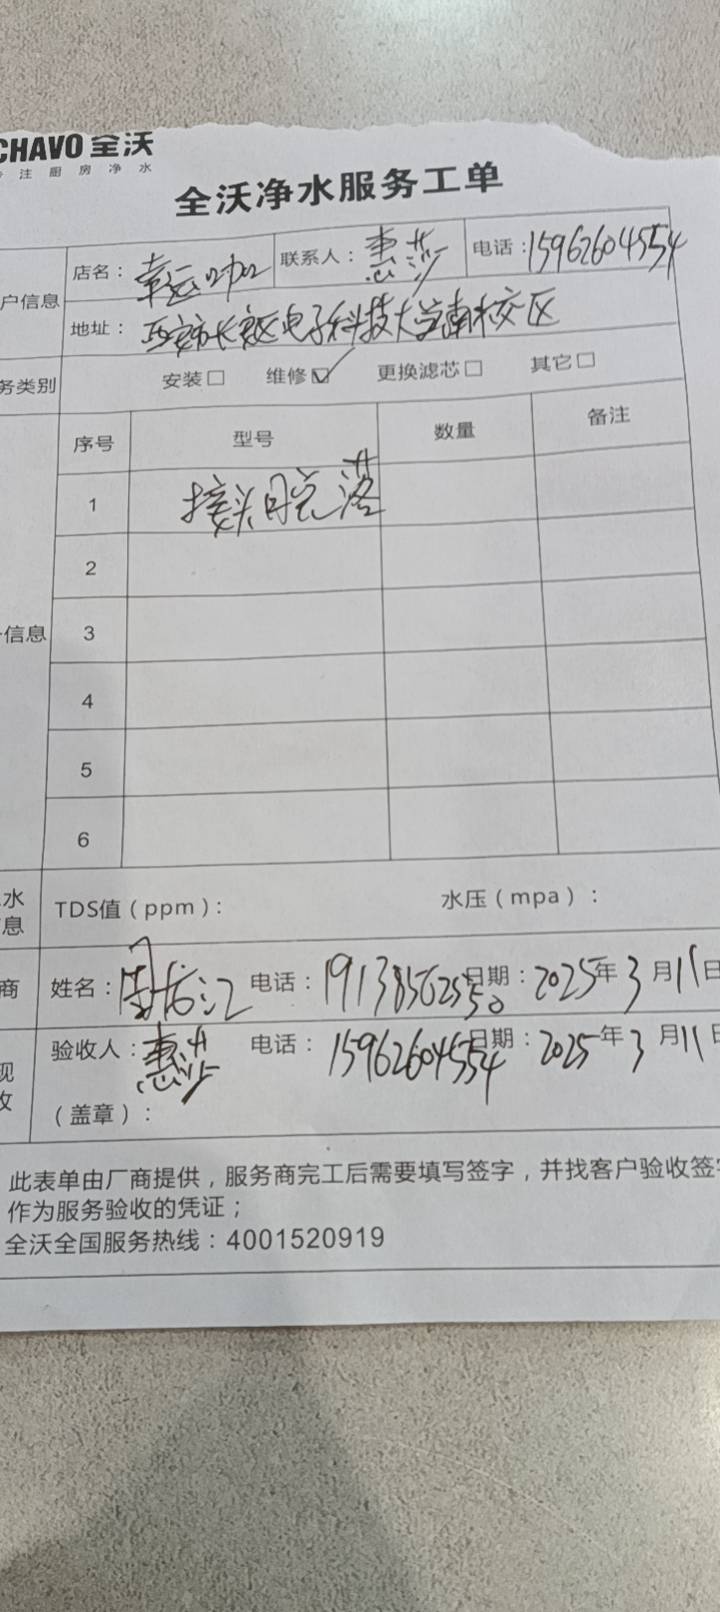 CHAVO 全沃
注厨房净水
全沃净水服务工单
户信息 店名：幸运咖 联系人：惠莎 电话：15962604554
地址：西安市长安区电子科技大学南校区
务类别 安装□ 维修☑ 更换滤芯□ 其它□
序号 型号 数量 备注
1 接头脱落
2
信息 3
4
5
6
水 TDS值（ppm）： 水压（mpa）：
息
商 姓名：周龙江 电话： 日期：2025年3月11日
现 验收人：惠莎 电话：15962604554 日期：2025年3月11日
收 （盖章）：
此表单由厂商提供，服务商完工后需要填写签字，并找客户验收签
作为服务验收的凭证；
全沃全国服务热线：4001520919